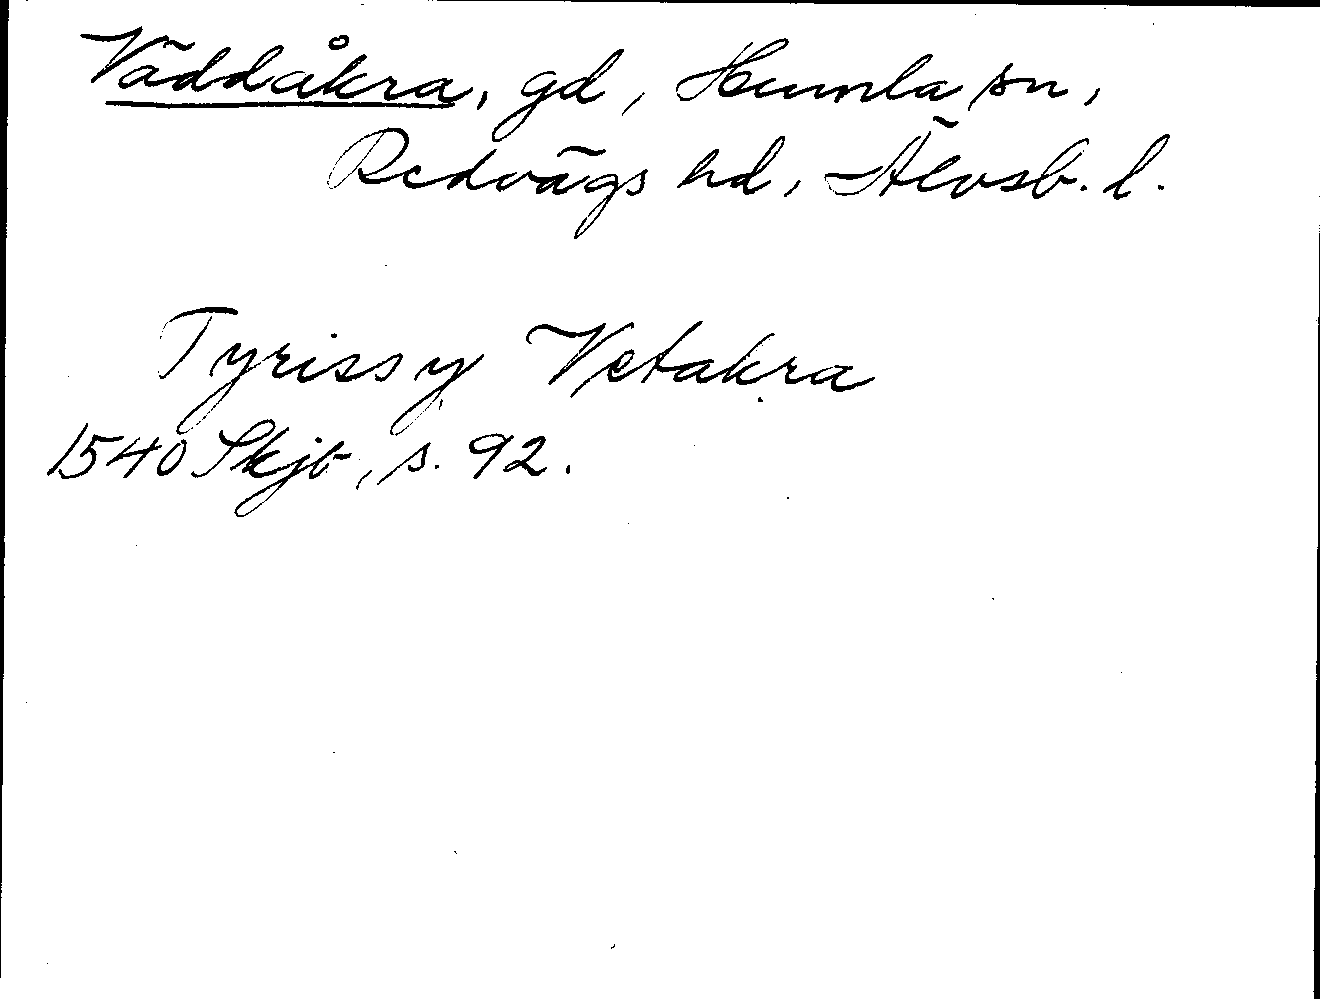 Väddåkra, gd, Humla sn,
Redvägs hd, Älvsb. l.
Tyriss y Vetakra
1540 Skjb, s. 92.